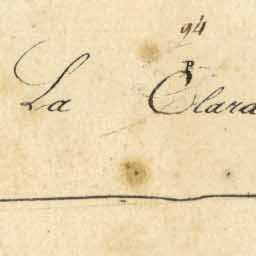 94
P
La Clara